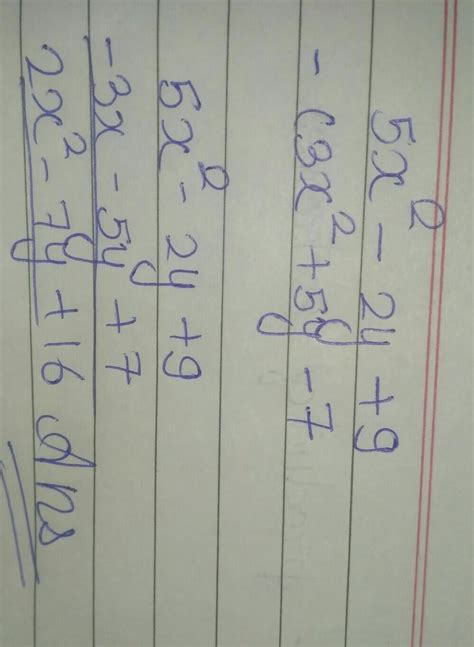 5x² - 2y + 9
- (3x² + 5y - 7
5x² - 2y + 9
-3x - 5y + 7
2x² - 7y + 16 Ans